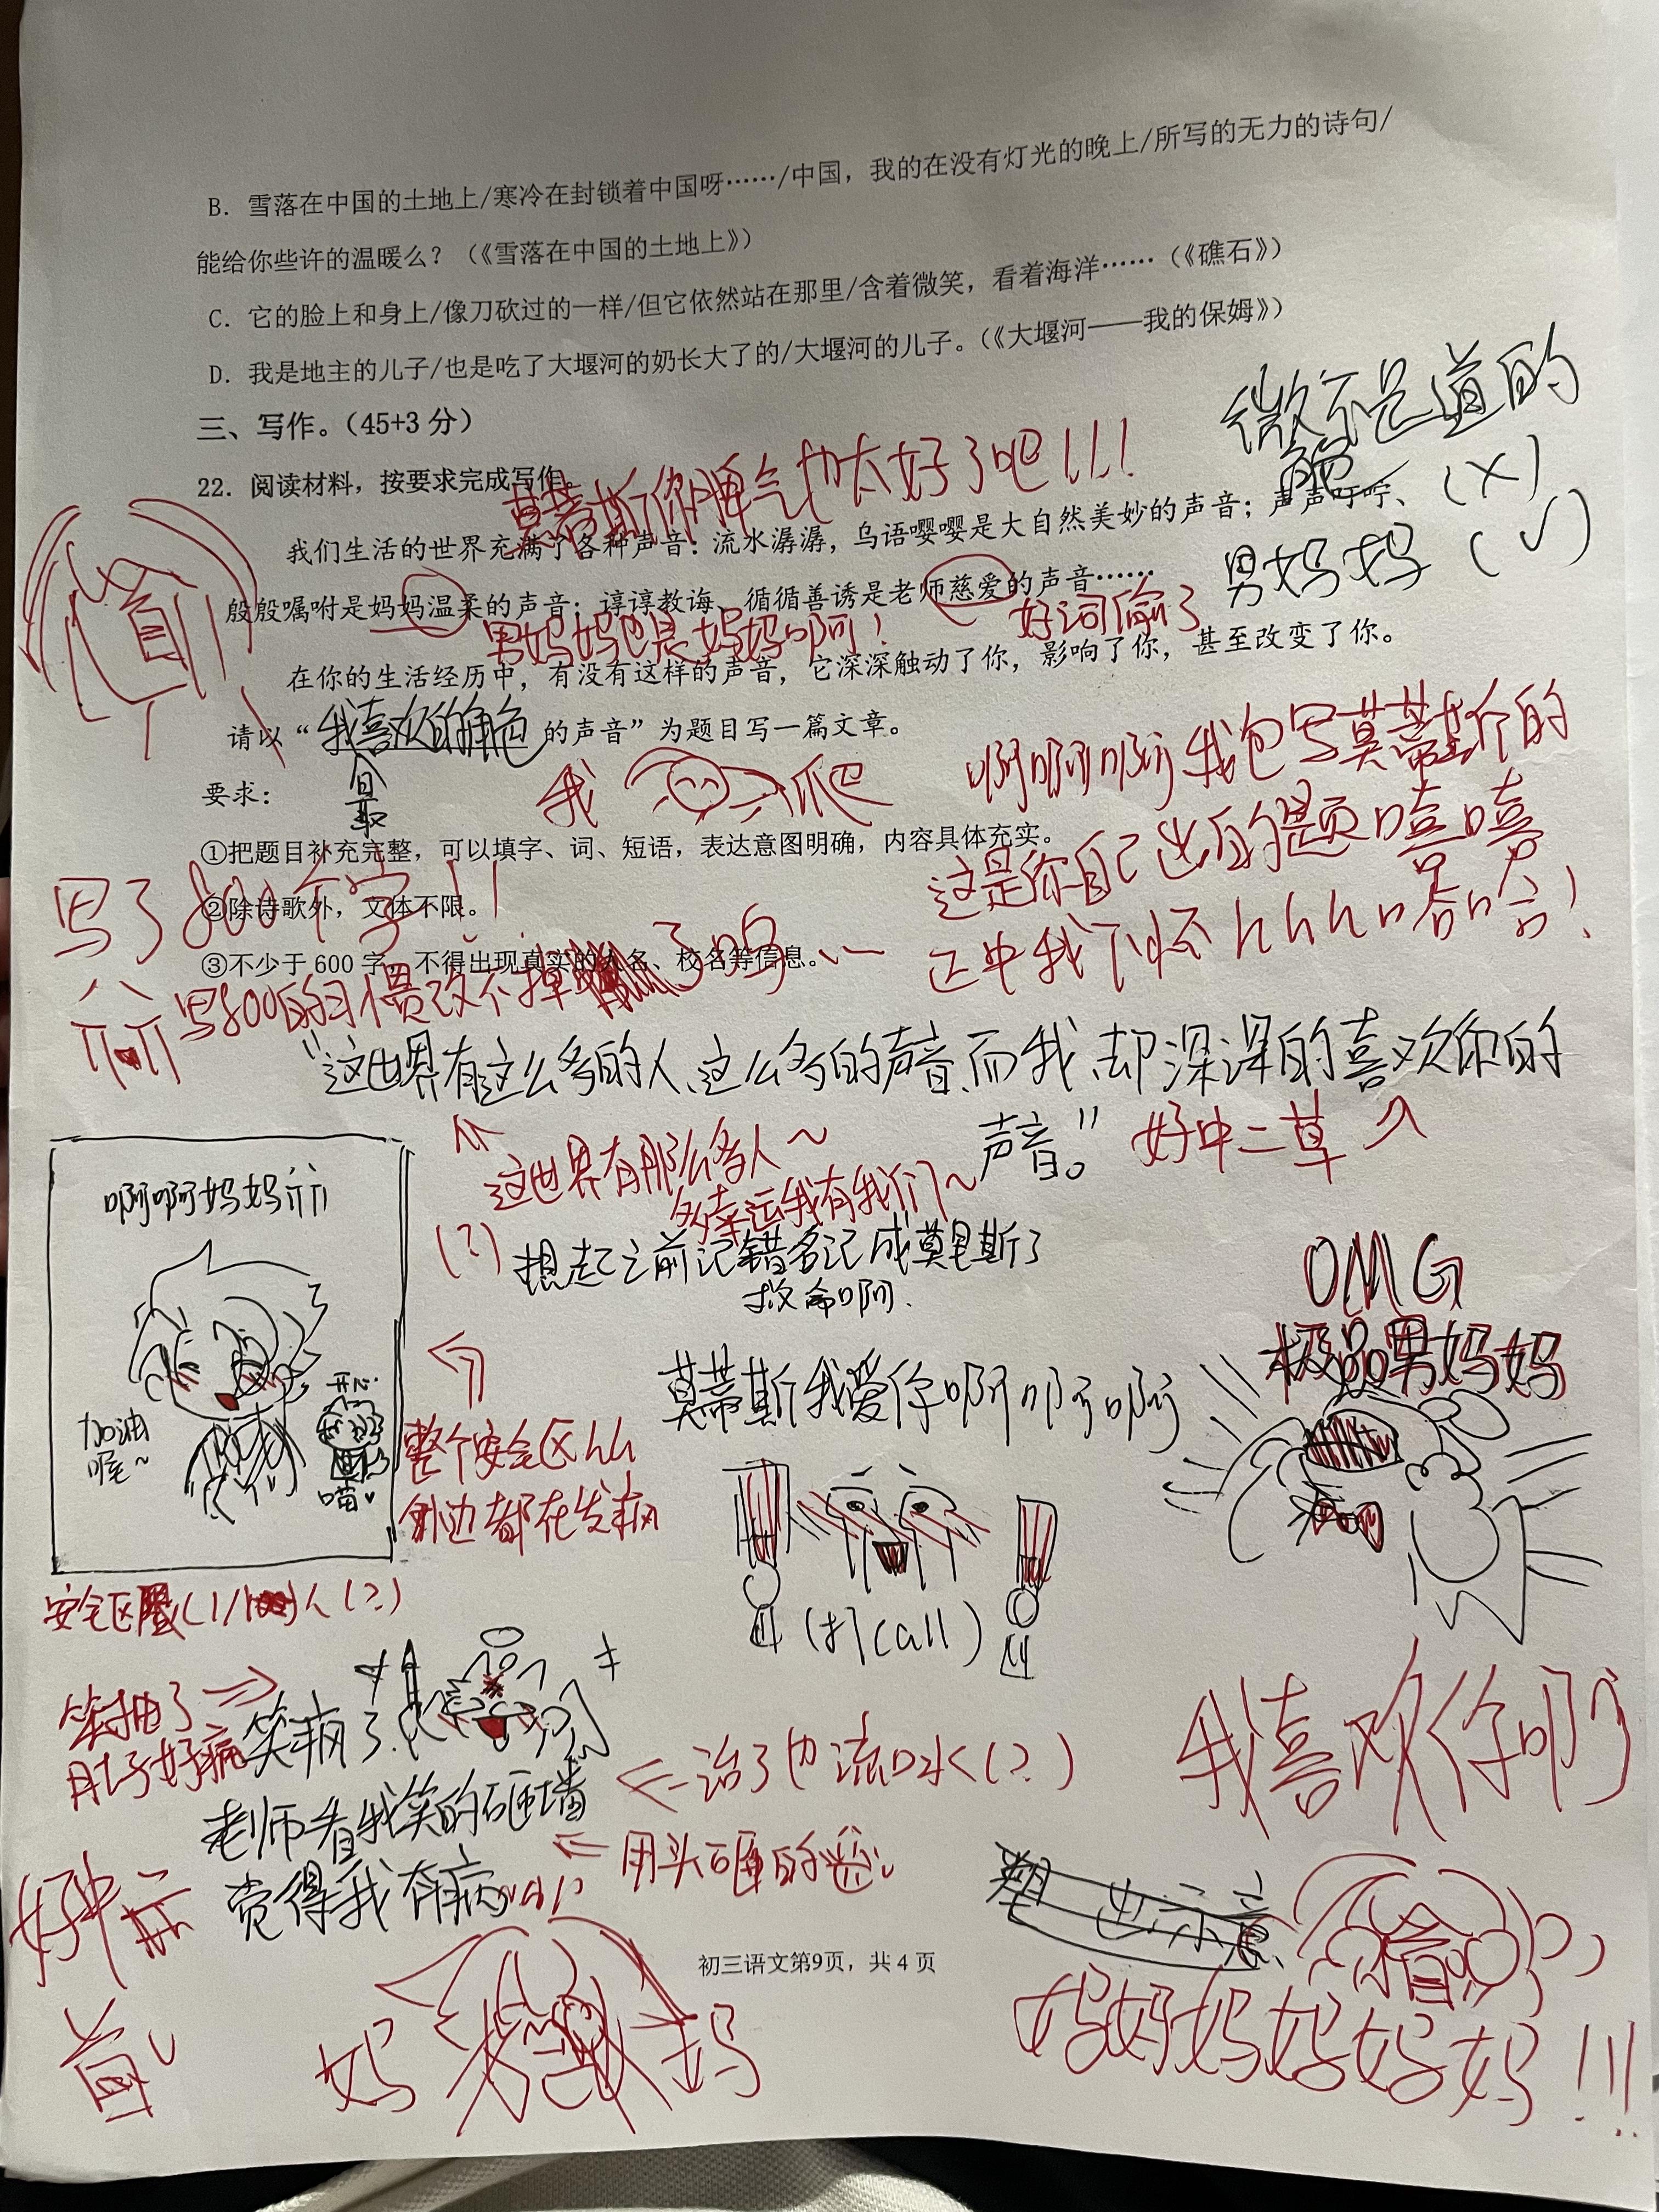 B. 雪落在中国的土地上/寒冷在封锁着中国呀……/中国，我的在没有灯光的晚上/所写的无力的诗句/
能给你些许的温暖么？（《雪落在中国的土地上》）
C. 它的脸上和身上/像刀砍过的一样/但它依然站在那里/含着微笑，看着海洋……（《礁石》）
D. 我是地主的儿子/也是吃了大堰河的奶长大了的/大堰河的儿子。（《大堰河——我的保姆》）
三、写作。（45+3 分）
微不足道的
(×)
22. 阅读材料，按要求完成写作。
莫蒂斯你脾气也太好了吧!!!
我们生活的世界充满了各种声音：流水潺潺，鸟语嘤嘤是大自然美妙的声音；声声叮咛、
男妈妈 (√)
殷殷嘱咐是妈妈温柔的声音；谆谆教诲、循循善诱是老师慈爱的声音……
男妈妈也是妈妈啊!
好词偷了
在你的生活经历中，有没有这样的声音，它深深触动了你，影响了你，甚至改变了你。
请以“我喜欢的角色的声音”为题目写一篇文章。
最
要求：
我 爬
啊啊啊我包写莫蒂斯的
这是你自己出的题嘻嘻
正中我下怀hhh哈哈!
①把题目补充完整，可以填字、词、短语，表达意图明确，内容具体充实。
②除诗歌外，文体不限。
写了800个字!!
③不少于 600 字，不得出现真实的人名、校名等信息。
写800的习惯改不掉了呜
“这世界有这么多的人、这么多的声音、而我、却深深的喜欢你的
声音。”
好中二草
这世界有那么多人~
多幸运我有我们~
(?)
想起之前记错名记成莫里斯了
救命啊.
啊啊妈妈
加油喔~
开心
喵
整个安全区hh
侧边都在发病
安全区(1/100)
(?)
莫蒂斯我爱你啊啊啊
(打call)
OMG
极品男妈妈
笑抽了
肚子好痛
笑疯了
治了也流口水(?)
老师看我笑的砸墙
用头砸的
觉得我有病
我喜欢你啊
好中二
初三语文第9页，共 4 页
妈 妈
妈妈妈妈妈妈!!!